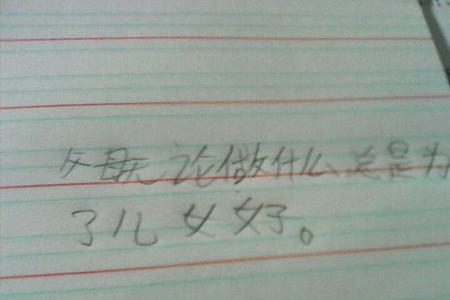 父母无论做什么总是为
了儿女好。